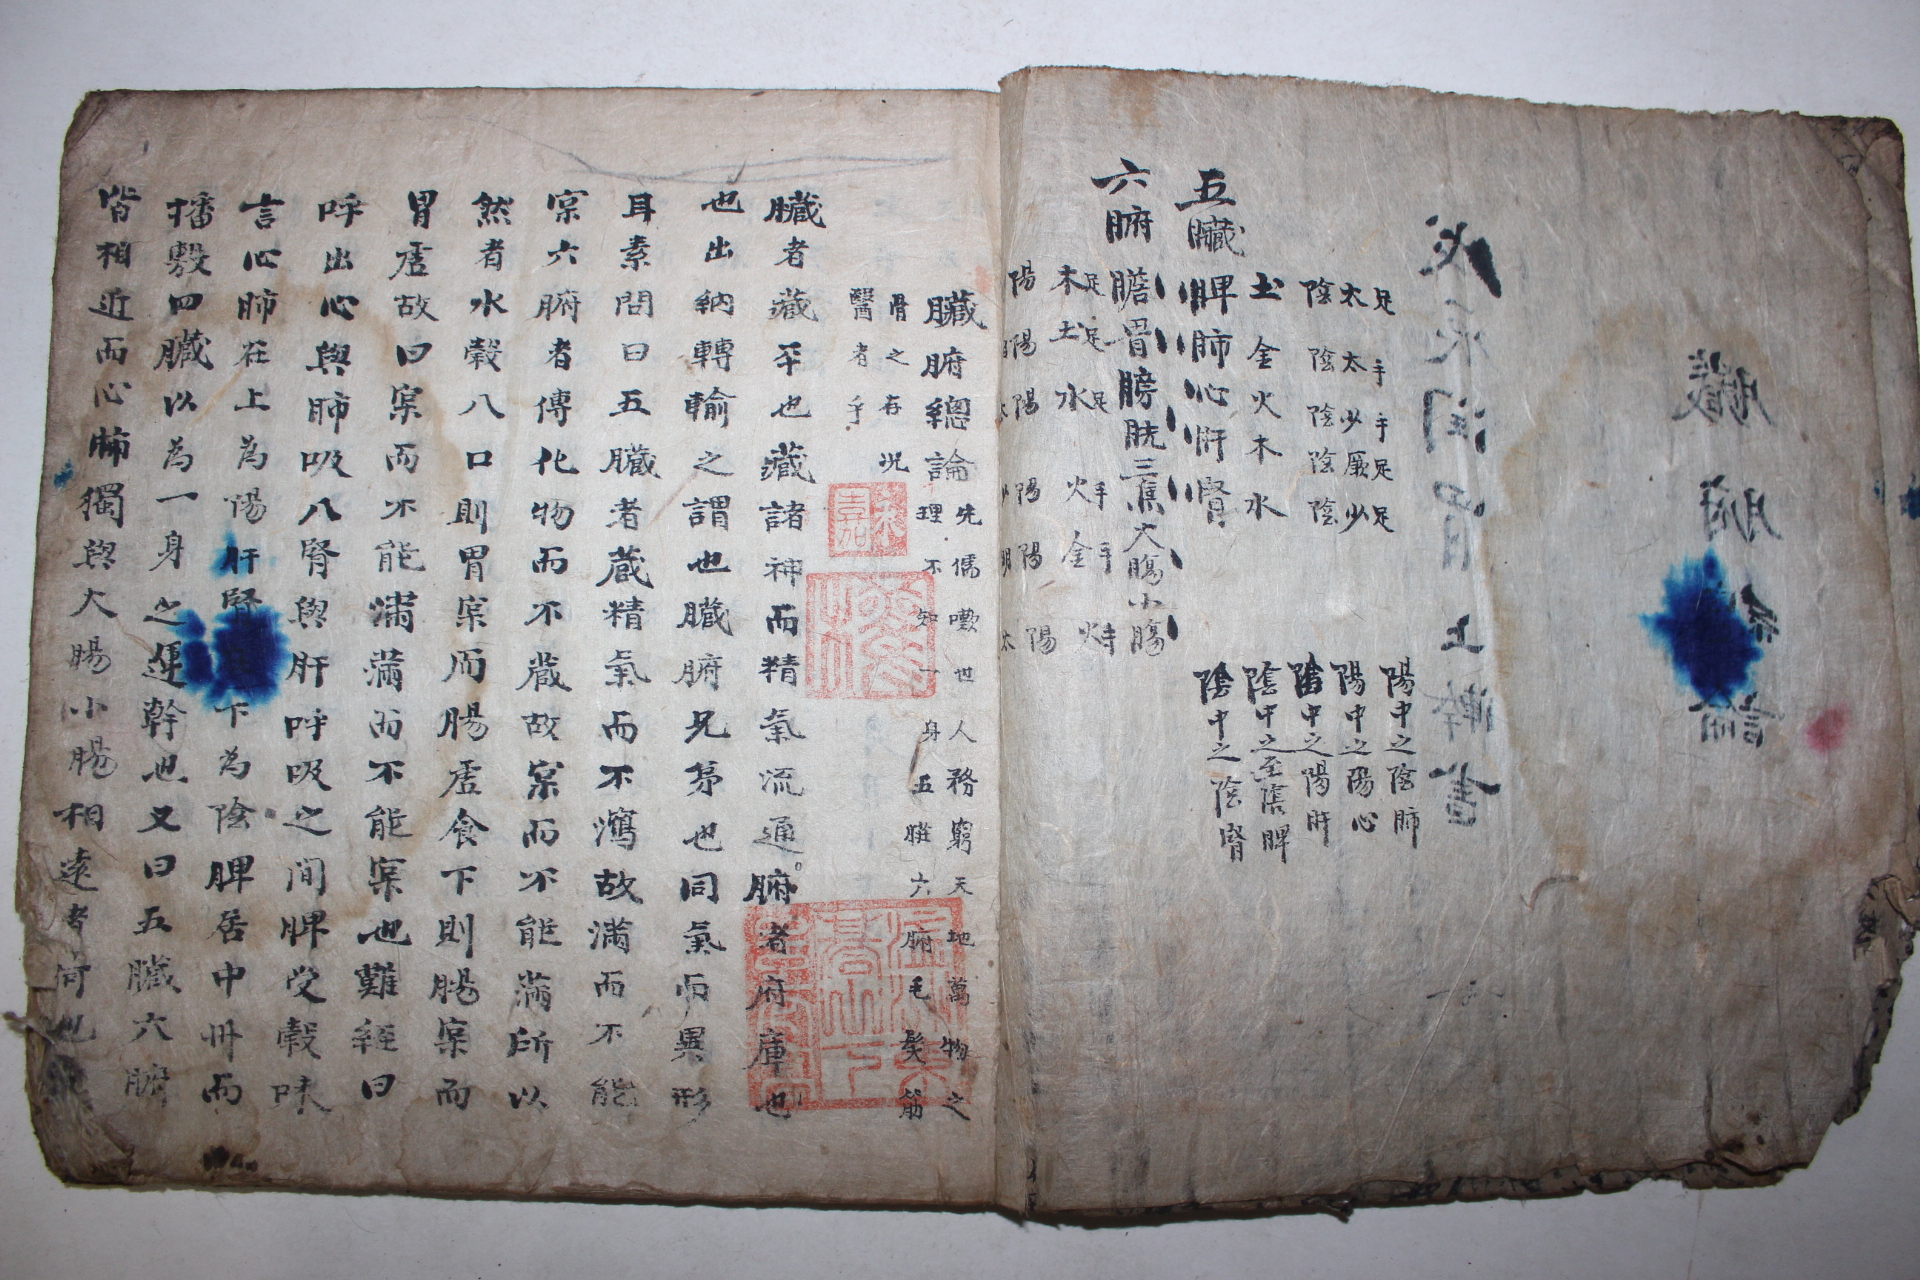 足 手 手 足 足
太 太 少 厥 少
陰 陰 陰 陰 陰
土 金 火 木 水
五臟 脾 肺 心 肝 腎
六腑 膽 胃 膀胱 三焦 大膓 小膓
足 足 足 手 手 手
木 土 水 火 金 火
陽 陽 陽 陽 陽 陽
陽中之陰肺
陽中之陽心
陰中之陽肝
陰中之至陰脾
陰中之陰腎
臟腑總論
先儒嘆世人務窮天地萬物之
理不知一身五臟六腑毛髮筋
骨之存况
醫者乎
臟者藏平也藏諸神而精氣流通腑者府庫也
也出納轉輸之謂也臟腑兄弟也同氣而異形
耳素問曰五臟者蔵精氣而不瀉故滿而不能
宲六腑者傳化物而不蔵故宲而不能滿所以
然者水糓入口則胃宲而腸虛食下則腸宲而
胃虛故曰宲而不能滿滿而不能宲也難經曰
呼出心與肺吸入腎與肝呼吸之間脾受糓味
言心肺在上為陽肝腎在下為陰脾居中州而
播敷四臟以為一身之運幹也又曰五臟六腑
皆相近而心肺獨與大腸小腸相遠者何也